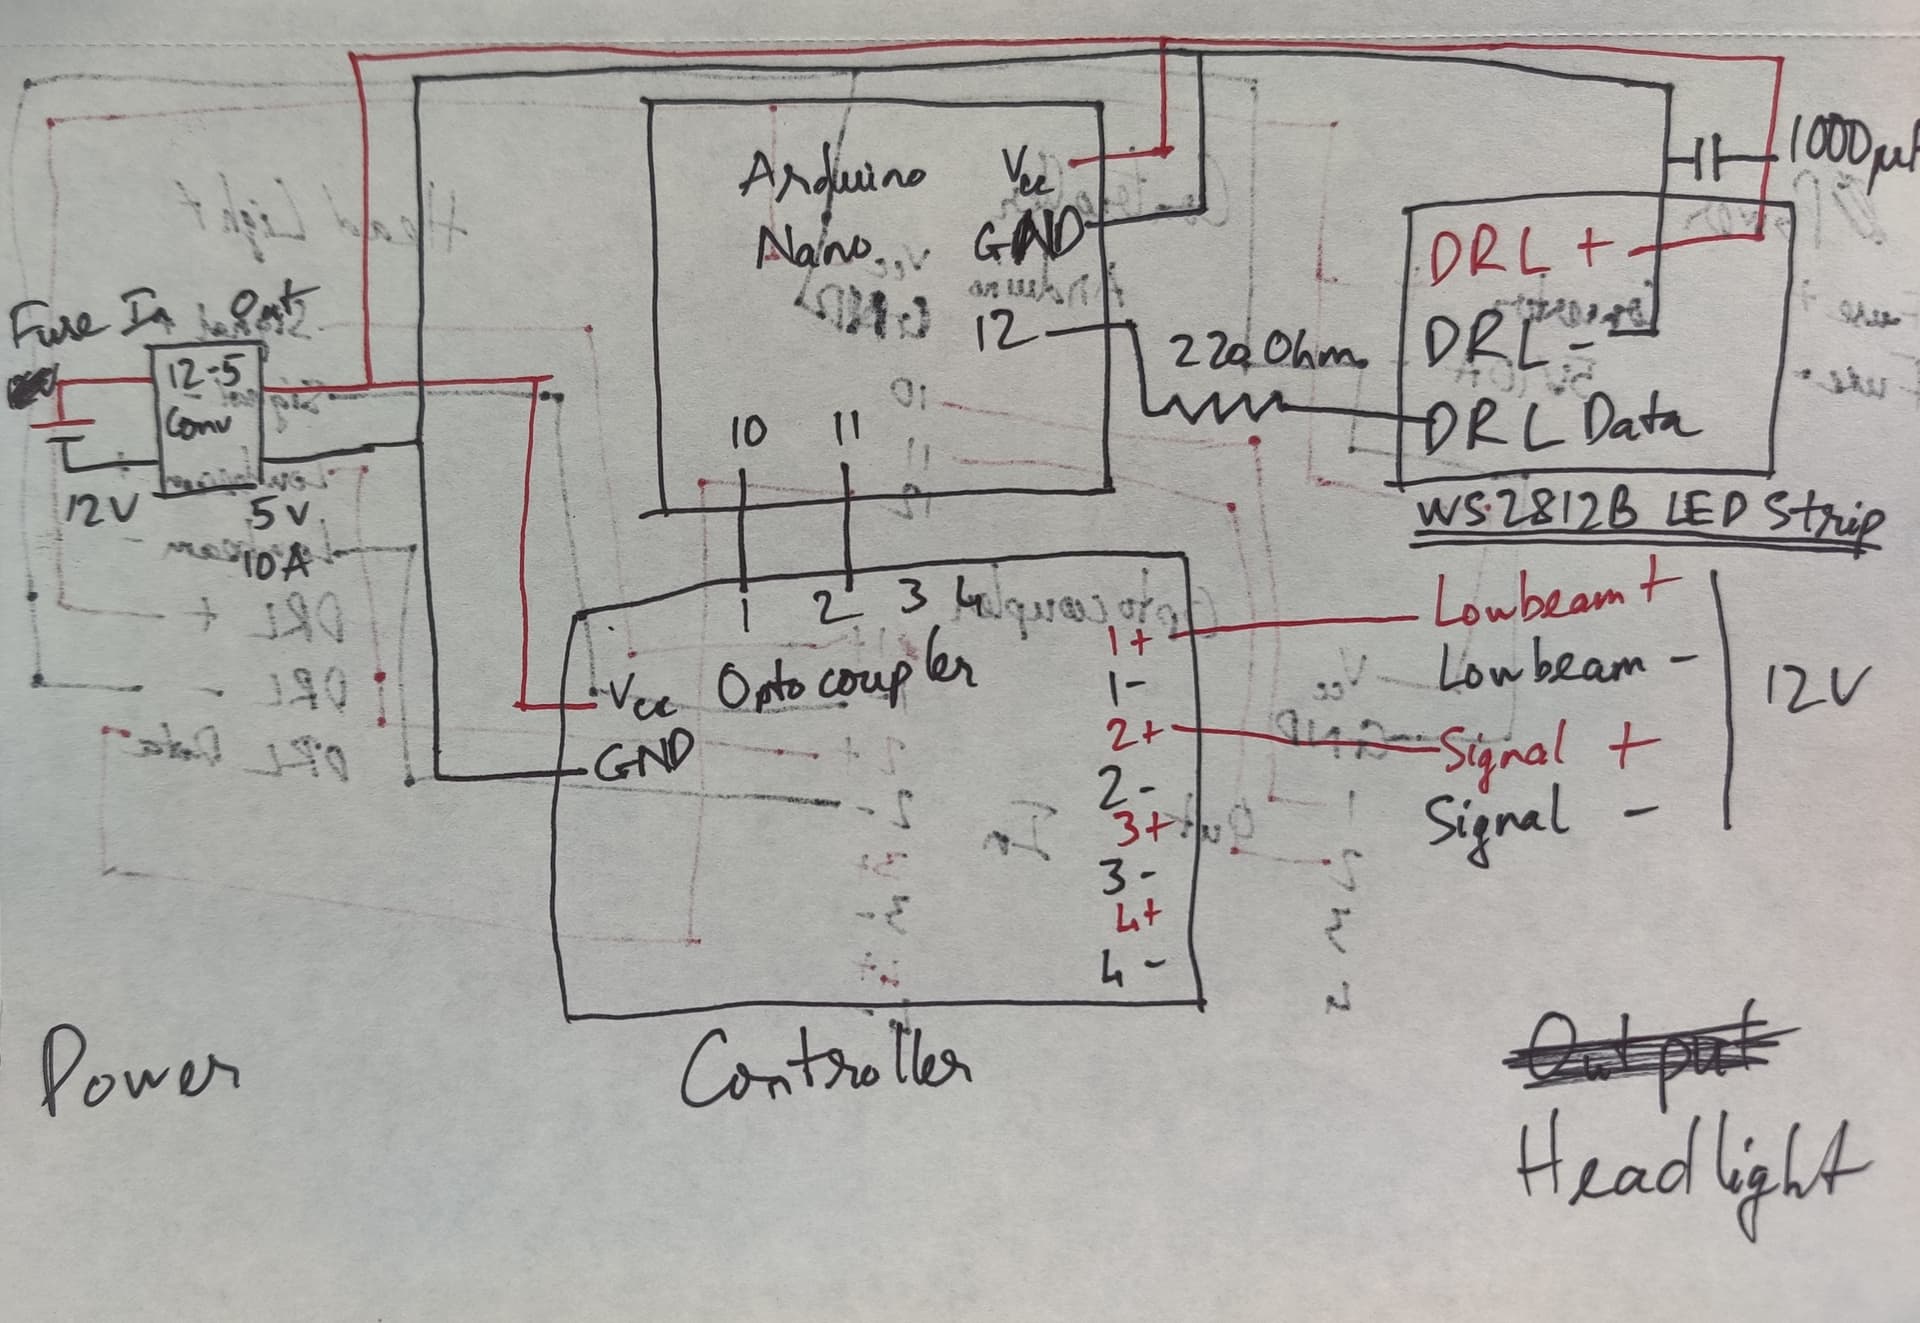 1000µF
Arduino
Nano
Vcc
GND
12
DRL +
DRL -
DRL Data
220 Ohm
WS2812B LED Strip
Fuse In Out
12-5
Conv
12V
5v
10A
10 11
1 2 3 4
Optocoupler
Vcc
GND
1+
1-
2+
2-
3+
3-
4+
4-
Lowbeam +
Lowbeam -
Signal +
Signal -
12V
Power
Controller
Output
Headlight